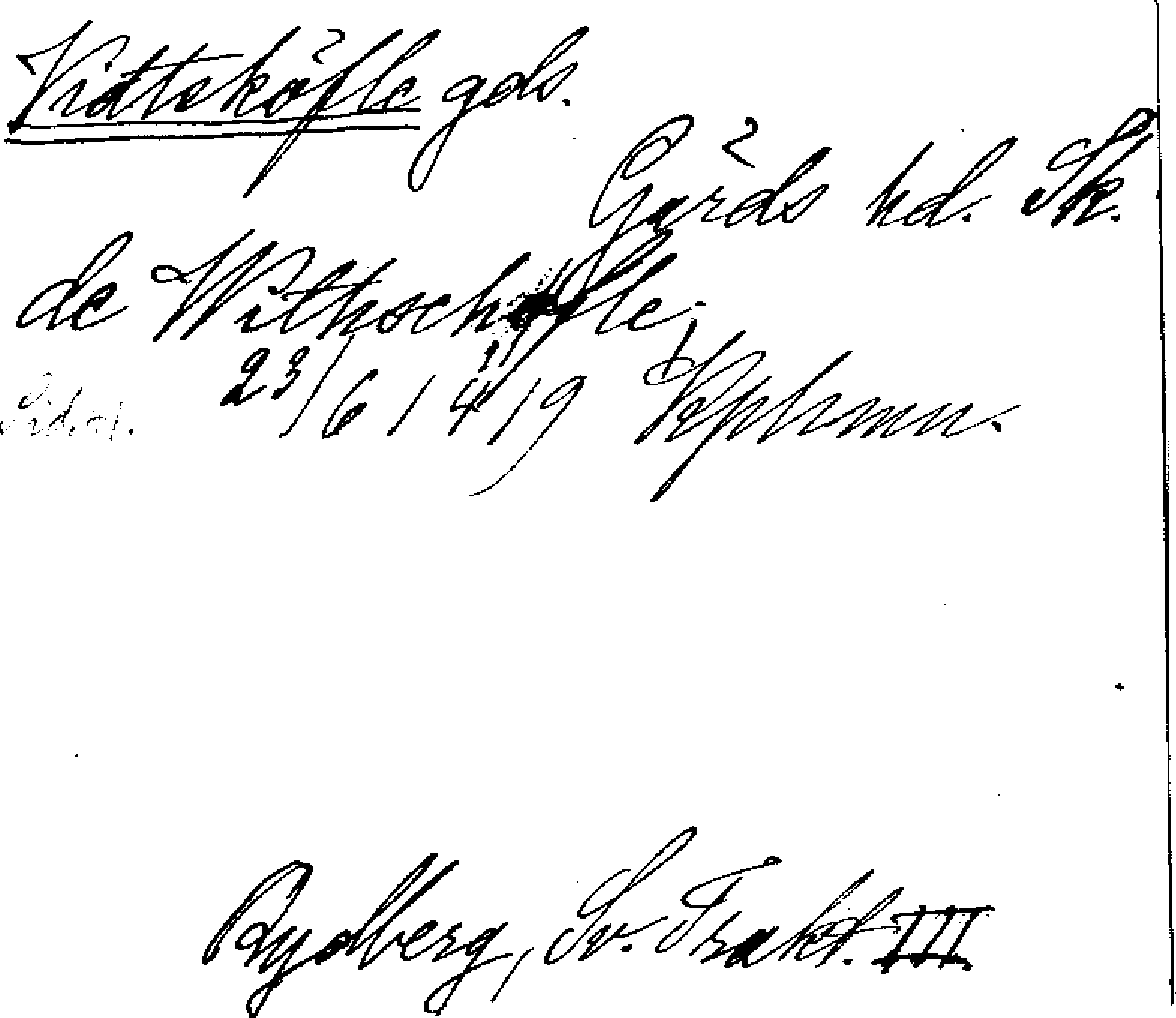 Vidtsköfle gds.
Gärds hd. Sk.
de Withschöfle,
23/6 1419 Kphmn.
Rydberg, Sv. Trakt. III